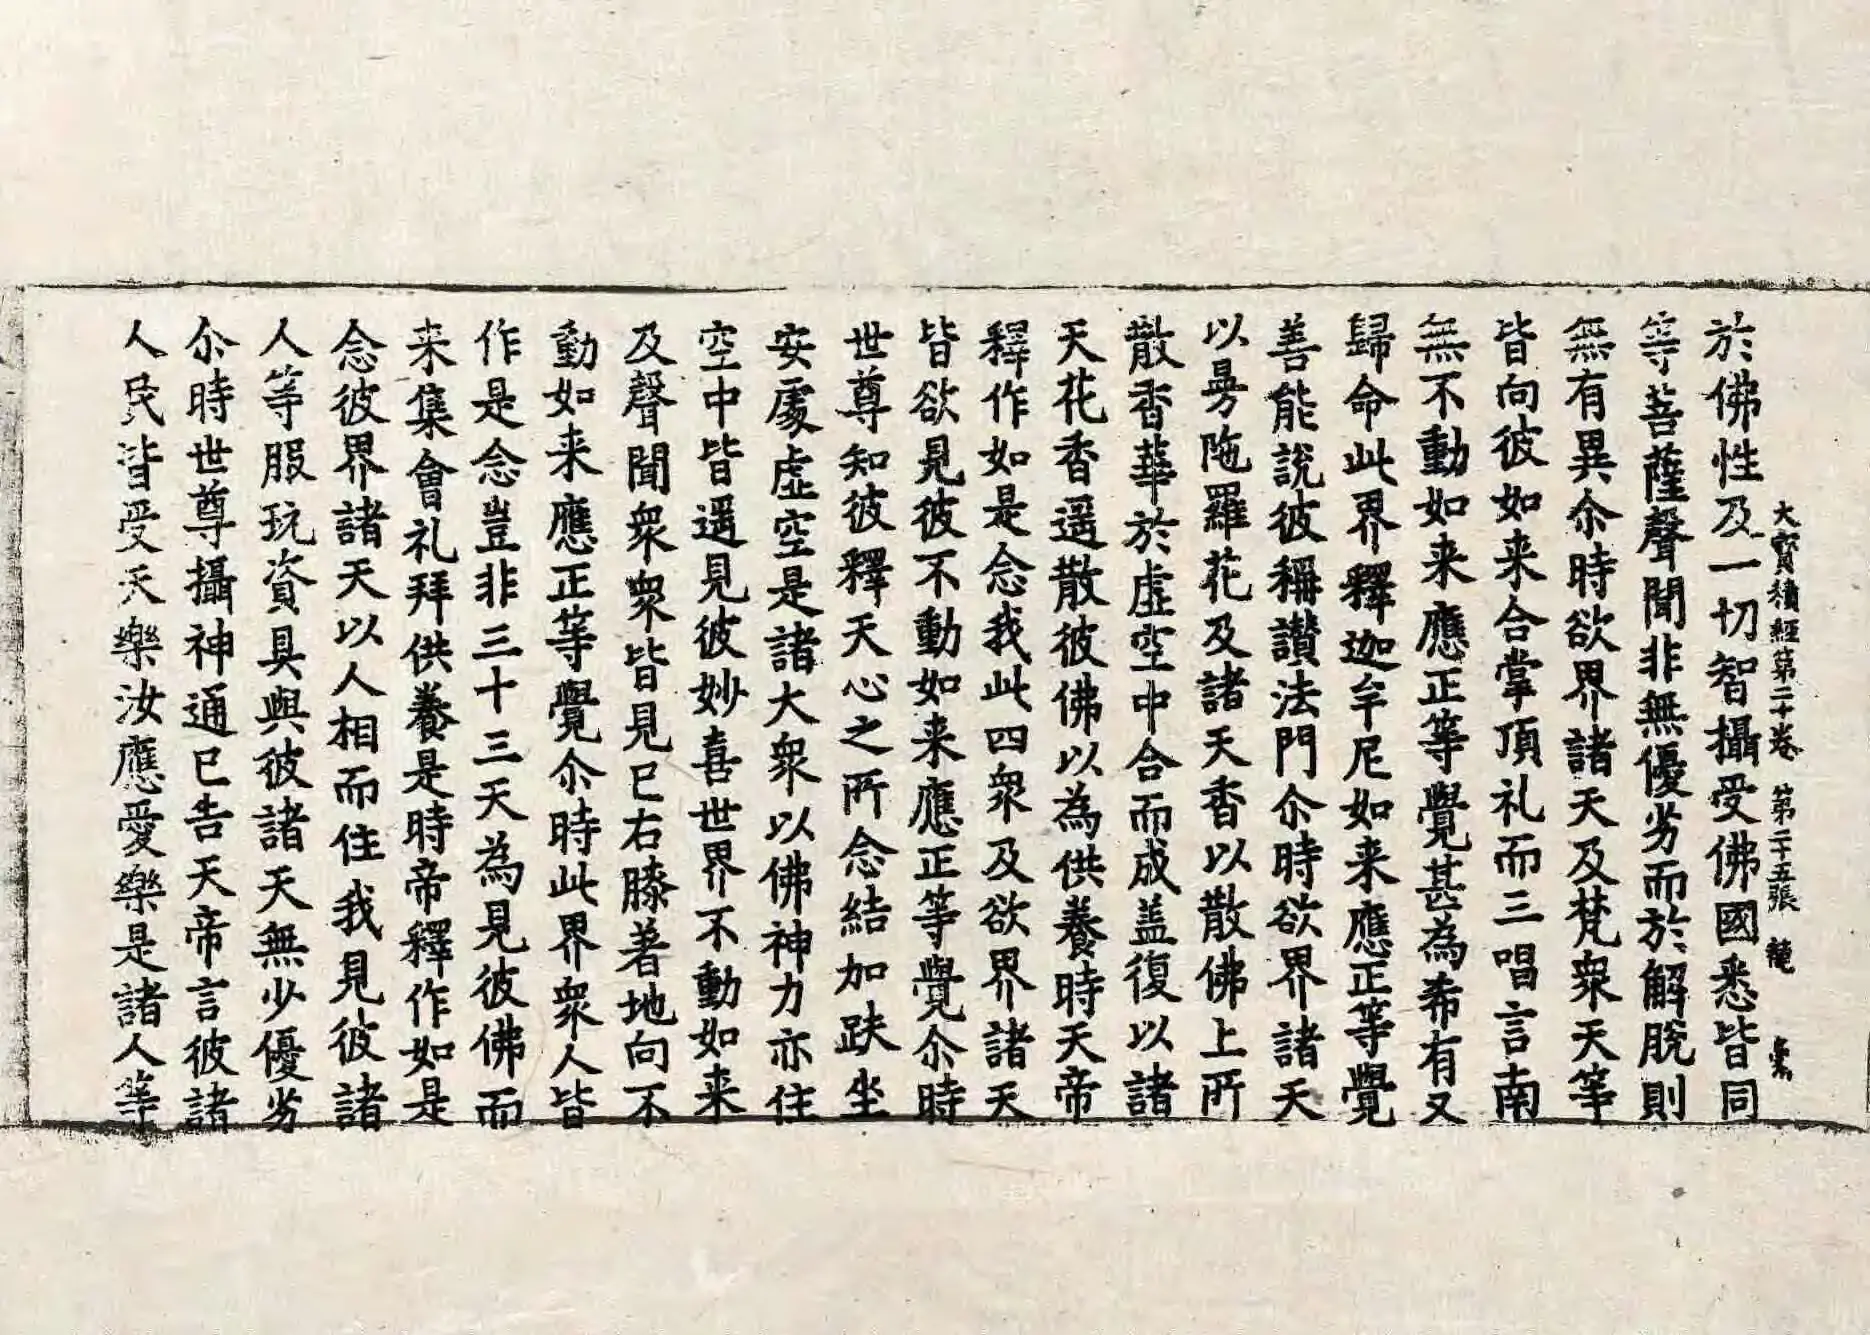 大寳積經第二十卷　第二十五張　龍
於佛性及一切智攝受佛國悉皆同
等菩薩聲聞非無優劣而於解脫則
無有異尒時欲界諸天及梵衆天等
皆向彼如来合掌頂礼而三唱言南
無不動如来應正等覺甚為希有又
歸命此界釋迦牟尼如来應正等覺
善能說彼稱讃法門尒時欲界諸天
以曼陁羅花及諸天香以散佛上所
散香華於虛空中合而成盖復以諸
天花香遥散彼佛以為供養時天帝
釋作如是念我此四衆及欲界諸天
皆欲見彼不動如来應正等覺尒時
世尊知彼釋天心之所念結加趺坐
安處虛空是諸大衆以佛神力亦住
空中皆遥見彼妙喜世界不動如来
及聲聞衆衆皆見已右膝著地向不
動如来應正等覺尒時此界衆人皆
作是念豈非三十三天為見彼佛而
来集會礼拜供養是時帝釋作如是
念彼界諸天以人相而住我見彼諸
人等服玩資具與彼諸天無少優劣
尒時世尊攝神通已告天帝言彼諸
人民皆受天樂汝應愛樂是諸人等